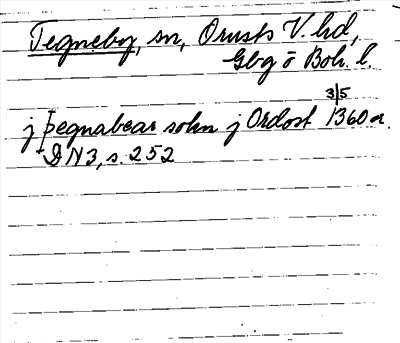 Tegneby, sn, Orusts V. hd,
Gbg o Boh. l.
3/5
j þegnabear sokn j Ordost 1360 a.
DN 3, s. 252